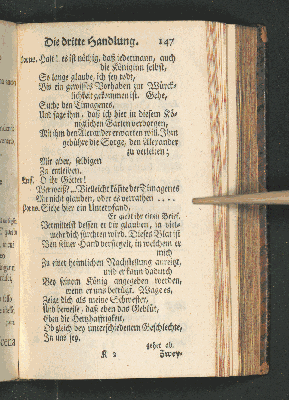 Die dritte Handlung. 147
Halt! es ist nöthig, daß iedermann, auch
die Königinn selbst,
So lange glaube, ich sey todt,
Bis ein gewisses Vorhaben zur Würck-
lichkeit gekommen ist. Gehe,
Suche den Timagenes,
Und sage ihm, daß ich hier in diesem Kö-
niglichen Garten verborgen,
Mit ihm den Alexander erwarten will. Ihm
gebühre die Sorge, den Alexander
zu verleiten;
Mir aber, selbigen
Zu entleiben.
O ihr Götter!
Wer weiß? .. Vielleicht könte der Timagenes
Mir nicht glauben, oder es verrathen ....
Siehe hier ein Unterpfand.
Er giebt ihr einen Brief.
Vermittelst dessen er dir glauben, in viels
mehr dich fürchten wird. Dieses Blat ist
Von seiner Hand versiegelt, in welchem er
mich
Zu einer heimlichen Nachstellung anreitzt,
und er kann dadurch
Bey seinem König angegeben werden,
wenn er uns betrügt. Wage es,
Zeige dich als meine Schwester,
Und beweise, daß eben das Geblüt,
Eben die Hertzhafftigkeit,
Ob gleich bey unterschiedenem Geschlechte,
In uns sey.
gehet ab.
K 2 Zwey-